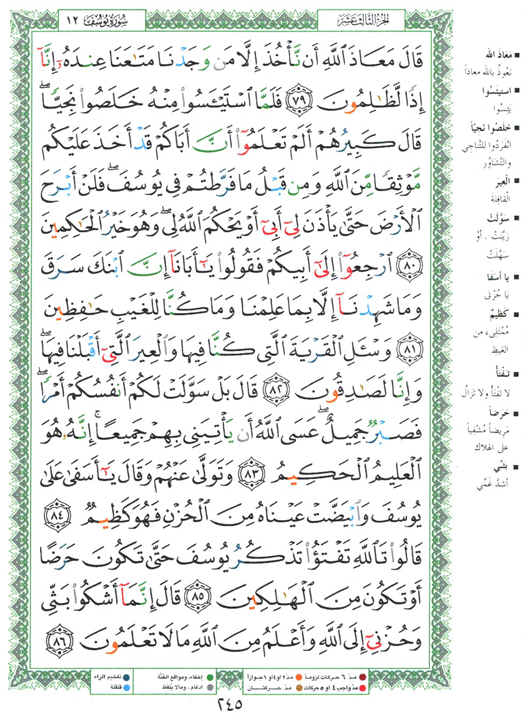 الجزء الثالث عشر
سورة يوسف ١٢
قَالَ مَعَاذَ ٱللَّهِ أَن نَّأۡخُذَ إِلَّا مَن وَجَدۡنَا مَتَٰعَنَا عِندَهُۥٓ إِنَّآ
إِذٗا لَّظَٰلِمُونَ ٧٩ فَلَمَّا ٱسۡتَيۡـَٔسُواْ مِنۡهُ خَلَصُواْ نَجِيّٗاۖ
قَالَ كَبِيرُهُمۡ أَلَمۡ تَعۡلَمُوٓاْ أَنَّ أَبَاكُمۡ قَدۡ أَخَذَ عَلَيۡكُم
مَّوۡثِقٗا مِّنَ ٱللَّهِ وَمِن قَبۡلُ مَا فَرَّطتُمۡ فِي يُوسُفَۖ فَلَنۡ أَبۡرَحَ
ٱلۡأَرۡضَ حَتَّىٰ يَأۡذَنَ لِيٓ أَبِيٓ أَوۡ يَحۡكُمَ ٱللَّهُ لِيۖ وَهُوَ خَيۡرُ ٱلۡحَٰكِمِينَ
٨٠ ٱرۡجِعُوٓاْ إِلَىٰٓ أَبِيكُمۡ فَقُولُواْ يَٰٓأَبَانَآ إِنَّ ٱبۡنَكَ سَرَقَ
وَمَا شَهِدۡنَآ إِلَّا بِمَا عَلِمۡنَا وَمَا كُنَّا لِلۡغَيۡبِ حَٰفِظِينَ
٨١ وَسۡـَٔلِ ٱلۡقَرۡيَةَ ٱلَّتِي كُنَّا فِيهَا وَٱلۡعِيرَ ٱلَّتِيٓ أَقۡبَلۡنَا فِيهَاۖ
وَإِنَّا لَصَٰدِقُونَ ٨٢ قَالَ بَلۡ سَوَّلَتۡ لَكُمۡ أَنفُسُكُمۡ أَمۡرٗاۖ
فَصَبۡرٞ جَمِيلٌۖ عَسَى ٱللَّهُ أَن يَأۡتِيَنِي بِهِمۡ جَمِيعًاۚ إِنَّهُۥ هُوَ
ٱلۡعَلِيمُ ٱلۡحَكِيمُ ٨٣ وَتَوَلَّىٰ عَنۡهُمۡ وَقَالَ يَٰٓأَسَفَىٰ عَلَىٰ
يُوسُفَ وَٱبۡيَضَّتۡ عَيۡنَاهُ مِنَ ٱلۡحُزۡنِ فَهُوَ كَظِيمٞ ٨٤
قَالُواْ تَٱللَّهِ تَفۡتَؤُاْ تَذۡكُرُ يُوسُفَ حَتَّىٰ تَكُونَ حَرَضًا
أَوۡ تَكُونَ مِنَ ٱلۡهَٰلِكِينَ ٨٥ قَالَ إِنَّمَآ أَشۡكُواْ بَثِّي
وَحُزۡنِيٓ إِلَى ٱللَّهِ وَأَعۡلَمُ مِنَ ٱللَّهِ مَا لَا تَعۡلَمُونَ ٨٦
معاذ الله
نعوذ بالله معاذاً
استيئسوا
يئسوا
خلصوا نجيّاً
انفردوا للتناجي
والتشاور
العير
القافلة
سوّلت
زيّنت . أو
سهّلت
يا أسفا
يا حزني
كظيم
ممتلىء من
الغيظ
تفتأ
لا تفتأ ولا تزال
حرضاً
مريضاً مشفياً
على الهلاك
بثّي
أشدّ غمّي
مدّ ٦ حركات لزوماً مدّ ٢ او ٤ او ٦ جوازاً
مدّ واجب ٤ او ٥ حركات مدّ حركتان
إخفاء، ومواقع الغنّة
ادغام ، وما لا يلفظ
تفخيم الراء
قلقلة
٢٤٥